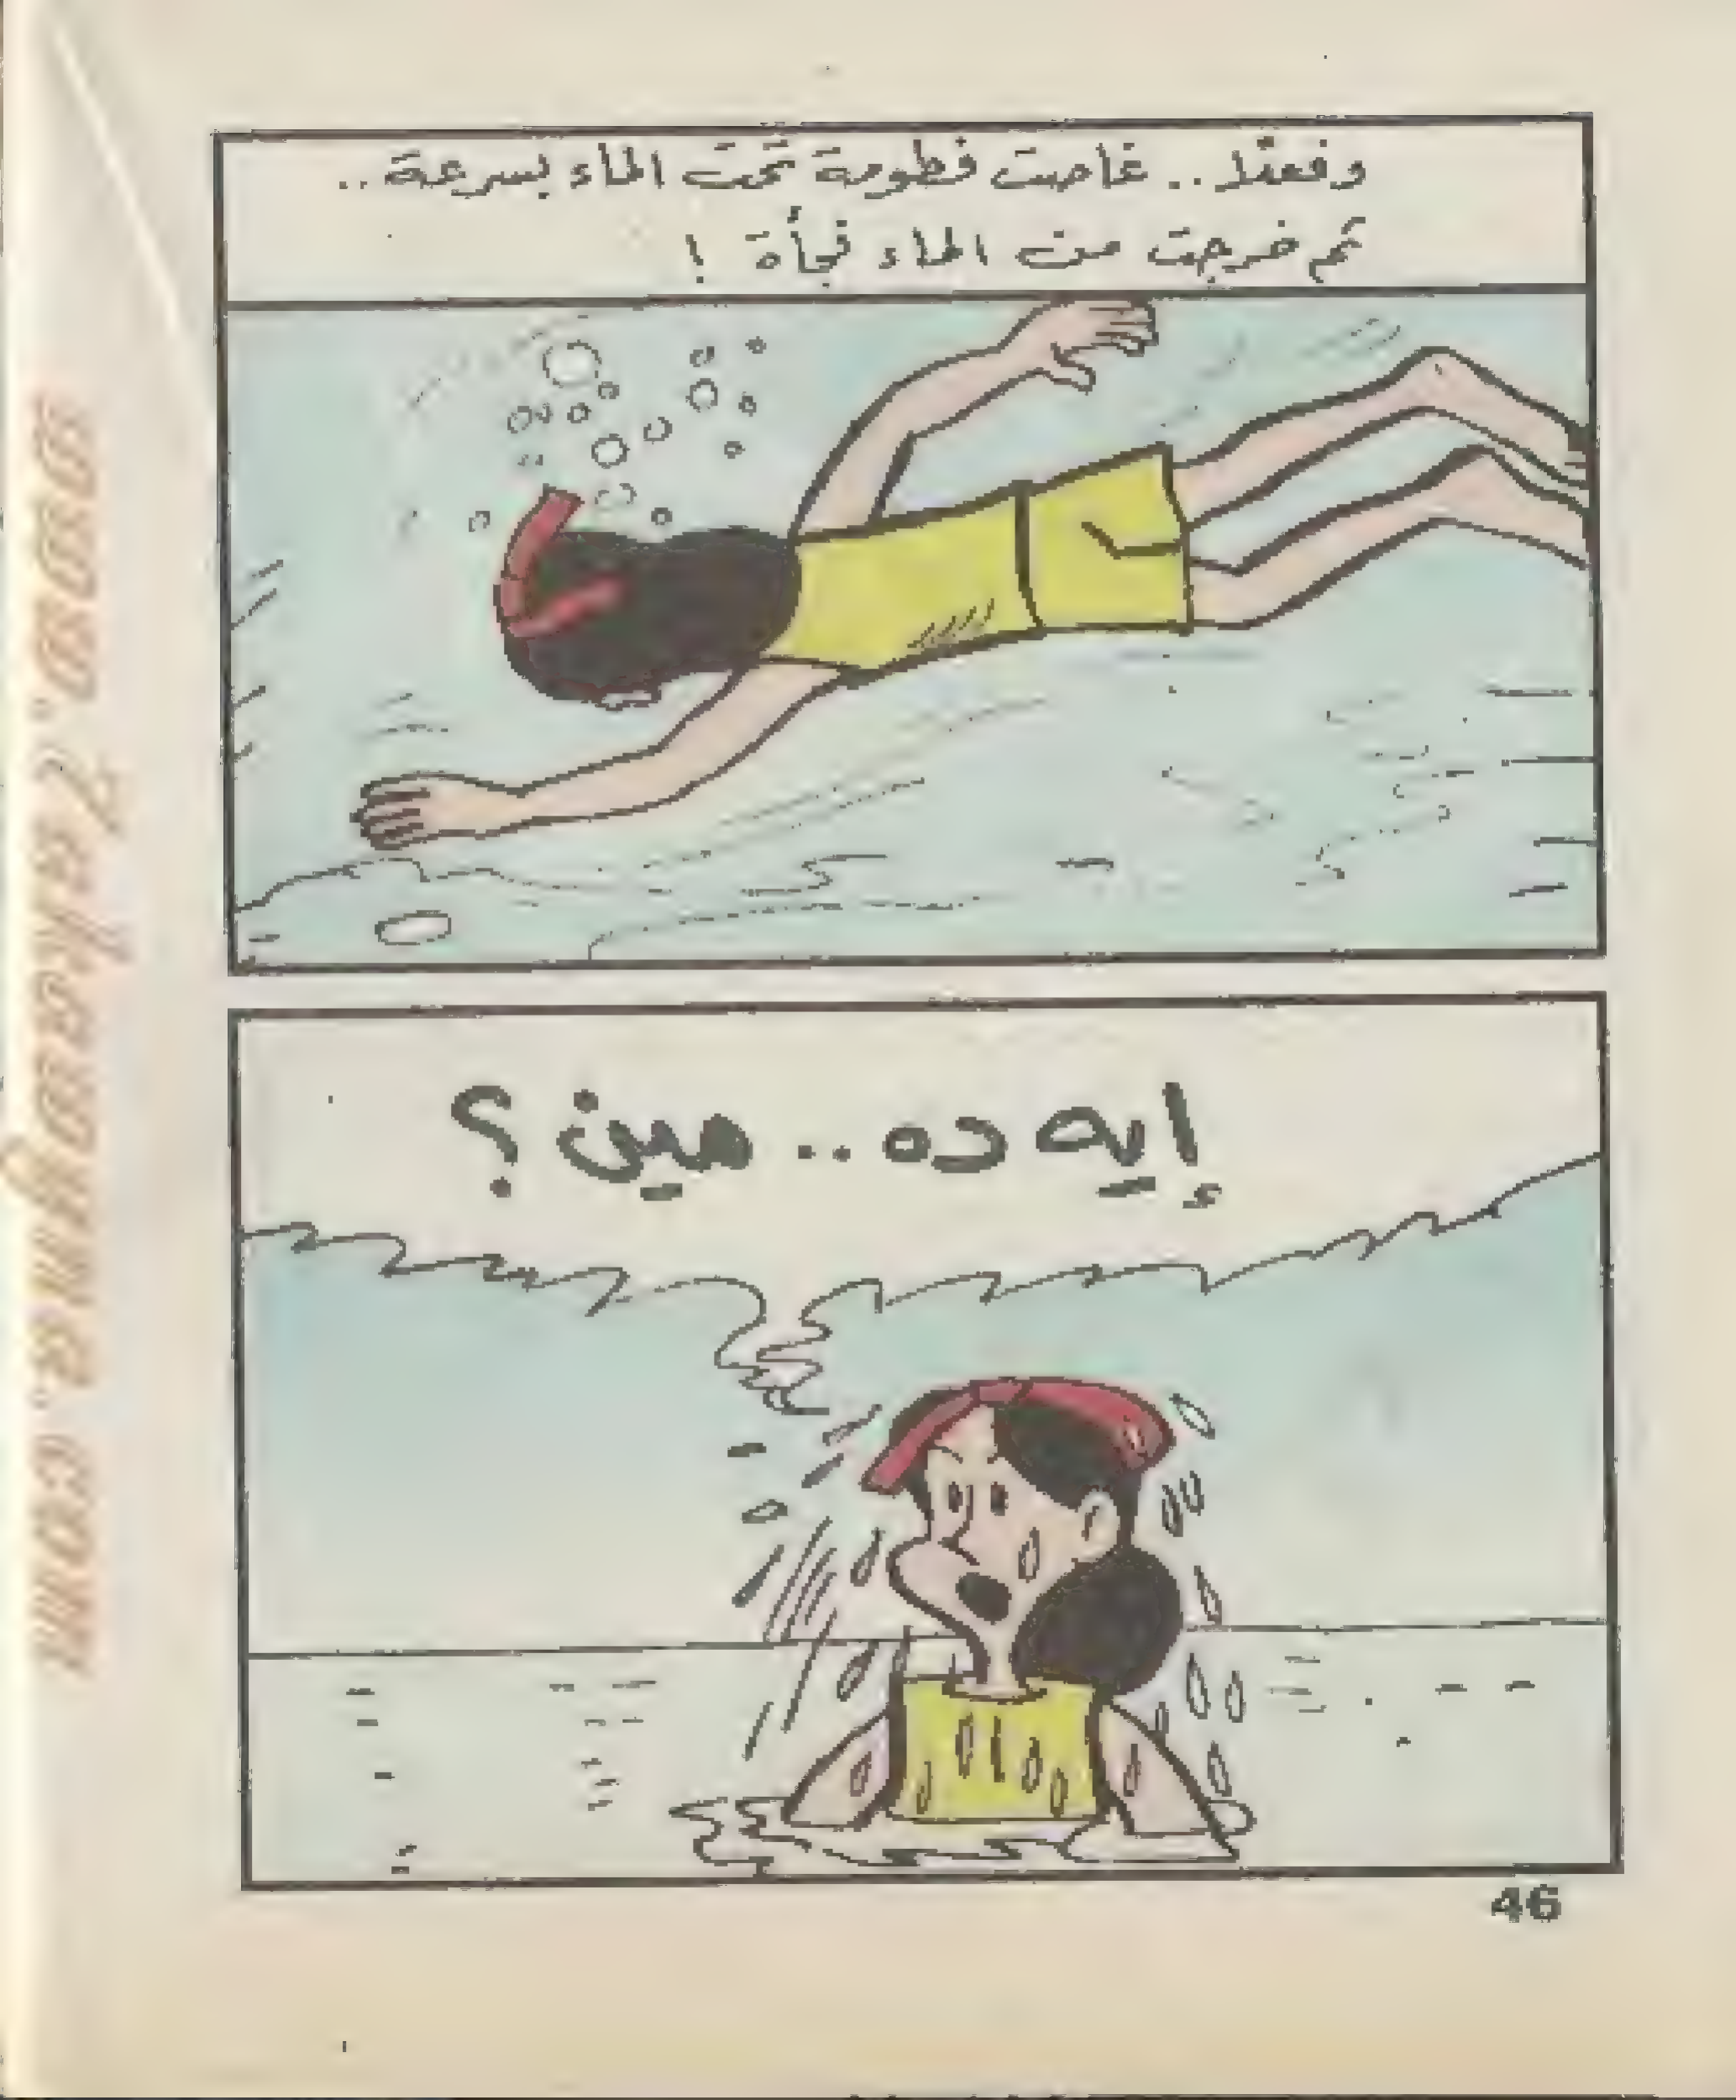 وفعلًا.. غاصت فطومة تحت الماء بسرعة..
ثم خرجت من الماء فجأة !
إيه ده.. مين ؟
46